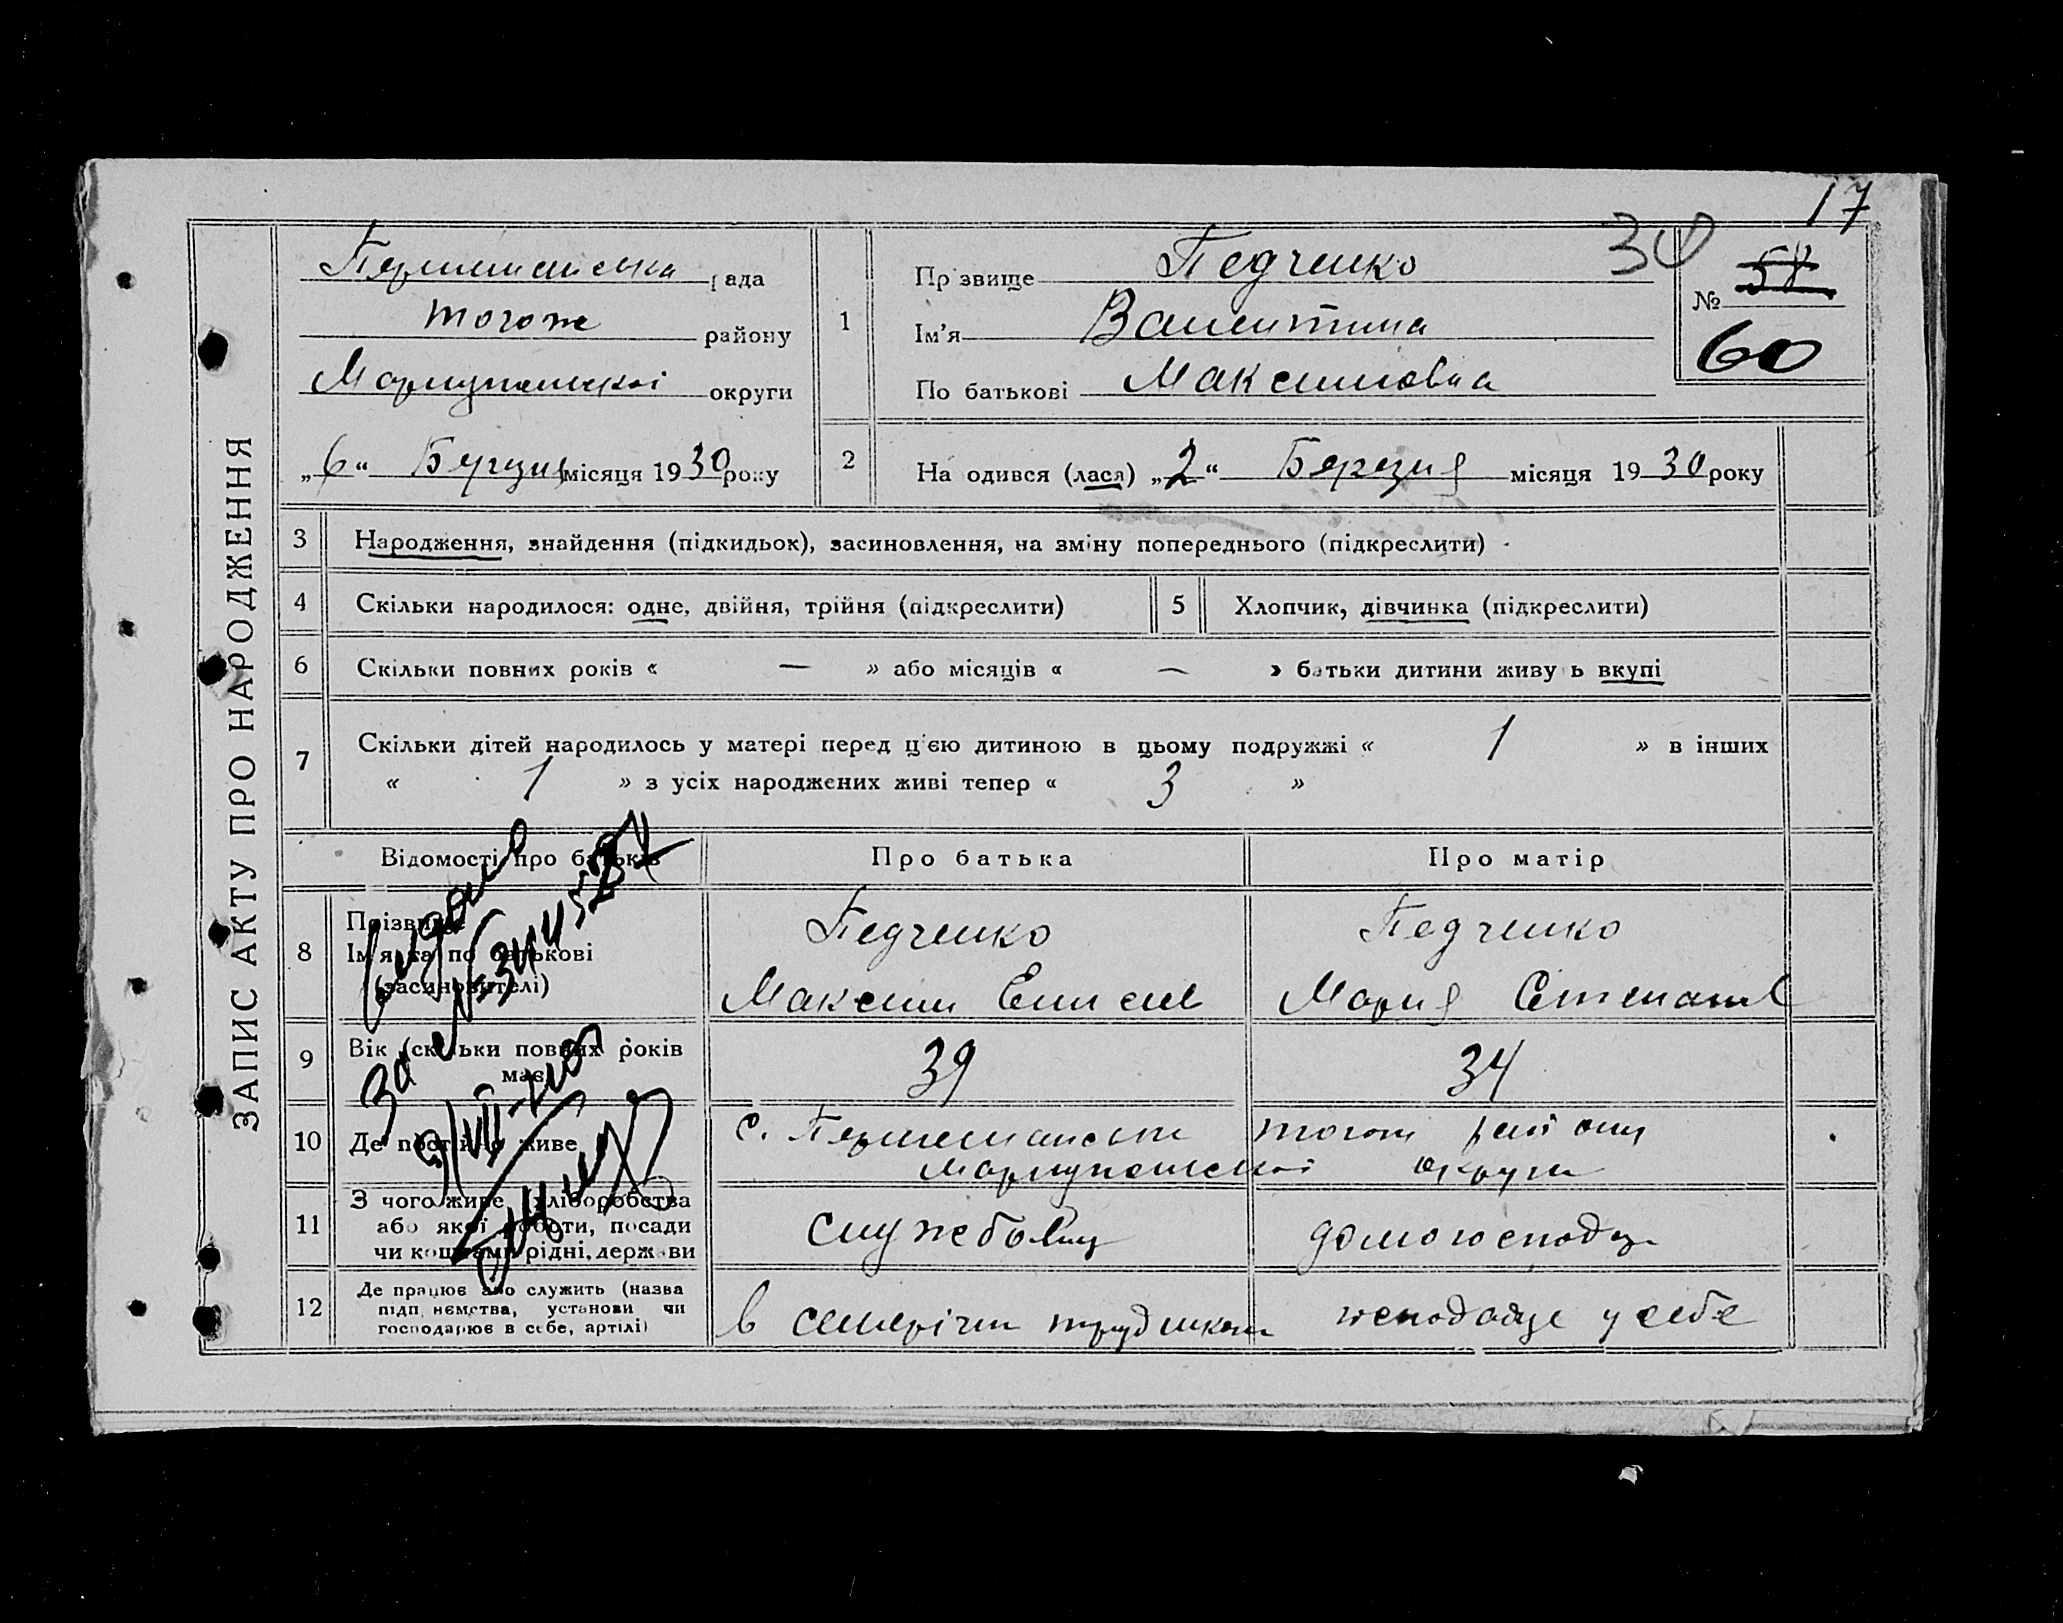 17
ЗАПИС АКТУ ПРО НАРОДЖЕННЯ
рада
тогоже району
Маріупольської округи
„6“ Березня місяця 1930 року
1
Прізвище Педченко
30
Ім’я Валентина
По батькові Максимовна
№ 58
60
2
Народився (лася) „2“ Березня місяця 1930 року
3 Народження, знайдення (підкидьок), засиновлення, на зміну попереднього (підкреслити)
4 Скільки народилося: одне, двійня, трійня (підкреслити) 5 Хлопчик, дівчинка (підкреслити)
6 Скільки повних років « — » або місяців « — » батьки дитини живуть вкупі
7 Скільки дітей народилось у матері перед цією дитиною в цьому подружжі « 1 » в інших
« 1 » з усіх народжених живі тепер « 3 »
Відомості про батьків Про батька Про матір
8 Прізвище Педченко Педченко
Ім’я та по батькові
(засиновителі) Максим Мария
9 Вік (скільки повних років має) 39 34
10 Де постійно живе с. тогож району
Маріупольської округи
11 З чого живе: хліборобства
або якої роботи, посади
чи коштами рідні, держави службовец домогосподар
12 Де працює або служить (назва
підприємства, установи чи
господарює в себе, артілі) в господарює у себе